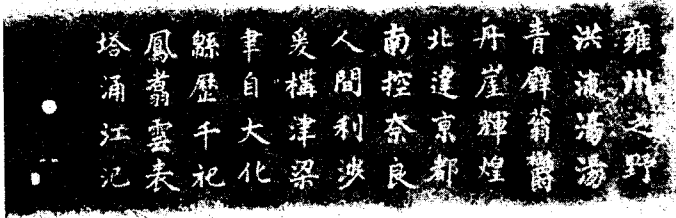 雍州之野
洪流湯湯
青壁蓊欝
丹崖輝煌
北達京都
南控奈良
人間利渉
爰構津梁
聿自大化
緜歷千祀
鳳翥雲表
塔涌江汜